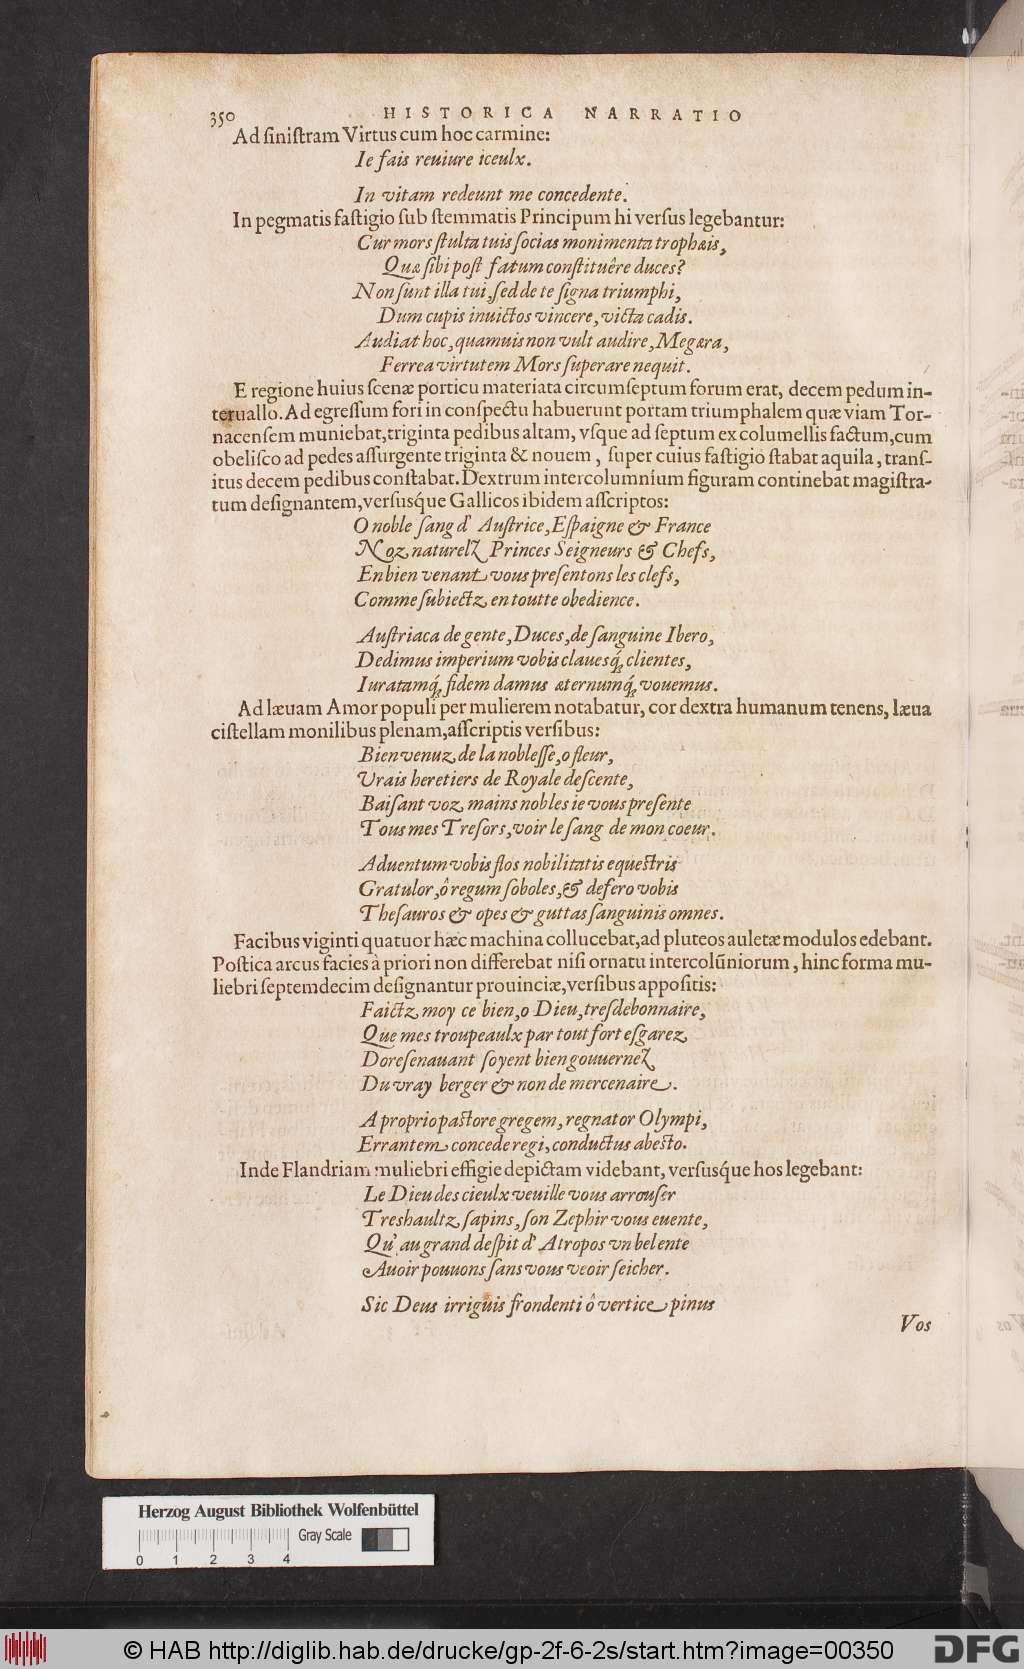 350 HISTORICA NARRATIO
Ad siniſtram Virtus cum hoc carmine:
Ie fais reuiure iceulx.
In vitam redeunt me concedente.
In pegmatis faſtigio ſub ſtemmatis Principum hi verſus legebantur:
Cur mors ſtulta tuis ſocias monimenta trophæis,
Quæ ſibi poſt fatum conſtituêre duces?
Non ſunt illa tui, ſed de te ſigna triumphi,
Dum cupis inuictos vincere, victa cadis.
Audiat hoc, quamuis non vult audire, Megæra,
Ferrea virtutem Mors ſuperare nequit.
E regione huius ſcenæ porticu materiata circumſeptum forum erat, decem pedum in-
teruallo. Ad egreſſum fori in conſpectu habuerunt portam triumphalem quæ viam Tor-
nacenſem muniebat, triginta pedibus altam, vſque ad ſeptum ex columellis factum, cum
obeliſco ad pedes aſſurgente triginta & nouem, ſuper cuius faſtigio ſtabat aquila, tranſ-
itus decem pedibus conſtabat. Dextrum intercolumnium figuram continebat magiſtra-
tum deſignantem, verſusq́ue Gallicos ibidem aſſcriptos:
O noble ſang d' Auſtrice, Eſpaigne & France
Noz naturelz Princes Seigneurs & Chefs,
En bien venant vous preſentons les clefs,
Comme ſubiectz en toutte obedience.
Auſtriaca de gente, Duces, de ſanguine Ibero,
Dedimus imperium vobis clauesq́; clientes,
Iuratamq́; fidem damus æternumq́; vouemus.
Ad læuam Amor populi per mulierem notabatur, cor dextra humanum tenens, læua
ciſtellam monilibus plenam, aſſcriptis verſibus:
Bien venuz de la nobleſſe, o fleur,
Vrais heretiers de Royale deſcente,
Baiſant voz mains nobles ie vous preſente
Tous mes Treſors, voir le ſang de mon coeur.
Aduentum vobis flos nobilitatis equeſtris
Gratulor, ô regum ſoboles, & defero vobis
Theſauros & opes & guttas ſanguinis omnes.
Facibus viginti quatuor hæc machina collucebat, ad pluteos auletæ modulos edebant.
Poſtica arcus facies à priori non differebat niſi ornatu intercolūniorum, hinc forma mu-
liebri ſeptemdecim deſignantur prouinciæ, verſibus appoſitis:
Faictz moy ce bien, o Dieu, treſdebonnaire,
Que mes troupeaulx par tout fort eſgarez
Doreſenauant ſoyent bien gouuernez
Du vray berger & non de mercenaire.
A proprio paſtore gregem, regnator Olympi,
Errantem concede regi, conductus abeſto.
Inde Flandriam muliebri effigie depictam videbant, verſusq́ue hos legebant:
Le Dieu des cieulx veuille vous arrouſer
Treshaultz ſapins, ſon Zephir vous euente,
Qu' au grand deſpit d' Atropos vn bel ente
Auoir pouuons ſans vous veoir ſeicher.
Sic Deus irriguis frondenti ô vertice pinus
Vos
Herzog August Bibliothek Wolfenbüttel
Gray Scale
0 1 2 3 4
© HAB http://diglib.hab.de/drucke/gp-2f-6-2s/start.htm?image=00350
DFG